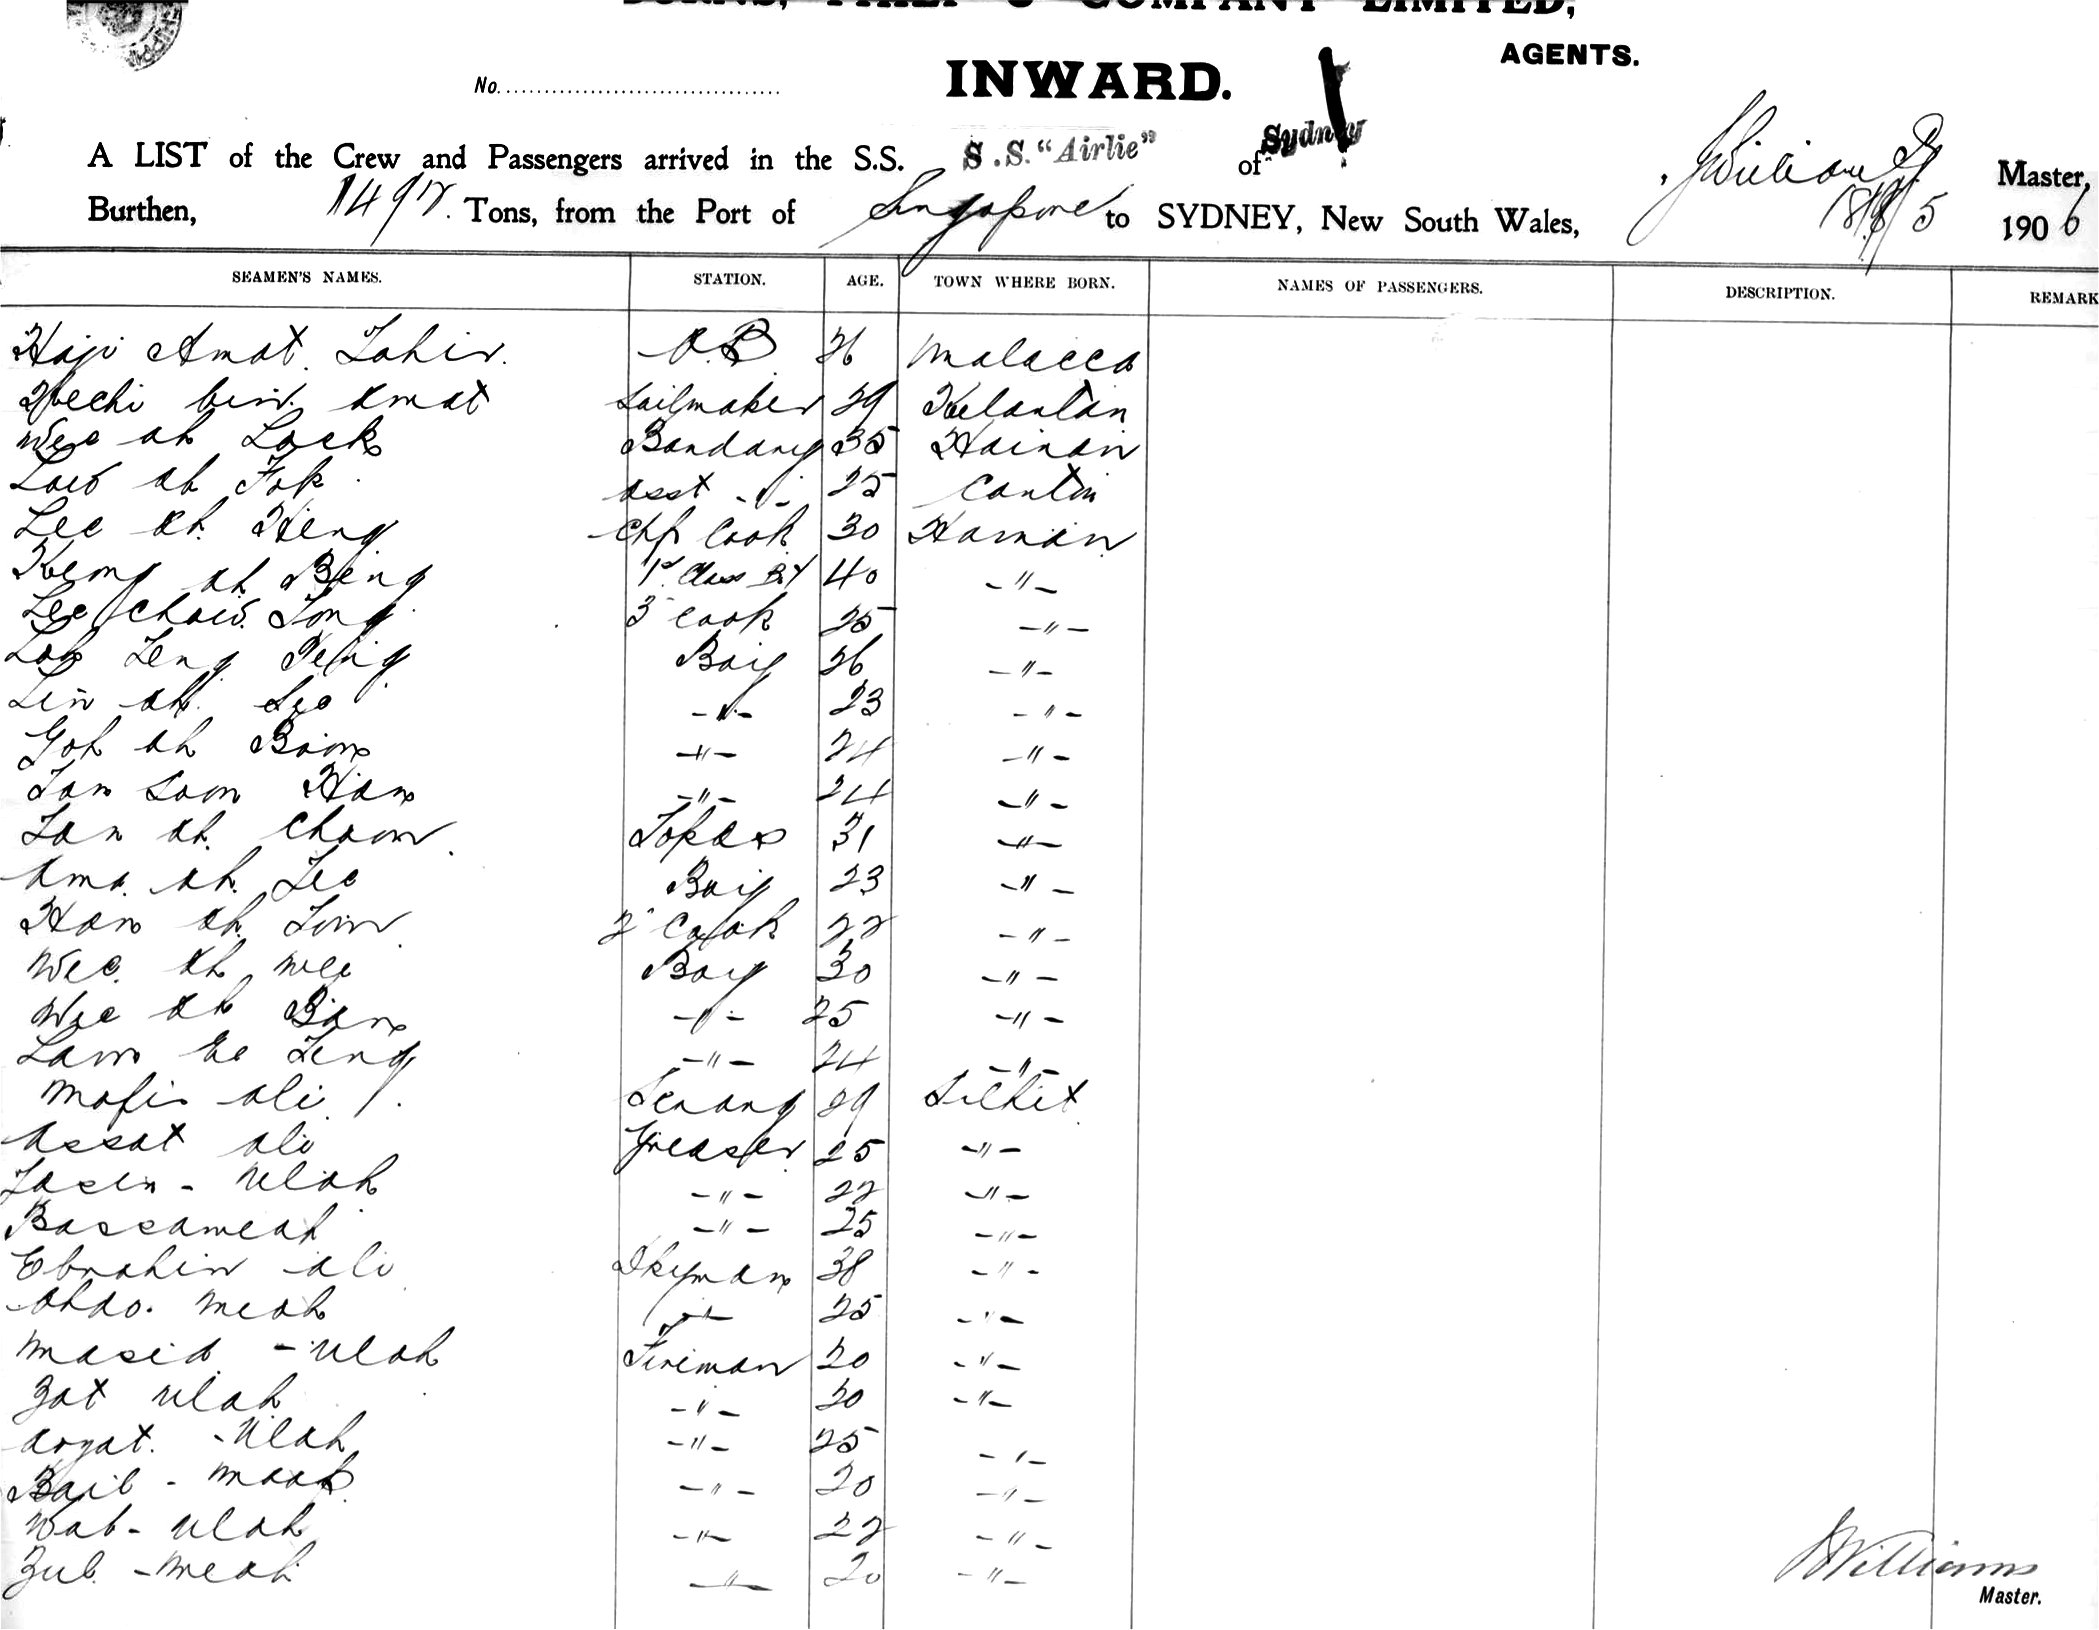 BURNS, PHILP & COMPANY LIMITED,
AGENTS.
No.
INWARD.
A LIST of the Crew and Passengers arrived in the S.S. S.S. "Airlie" of Sydney J Williams Master,
Burthen, 1492 Tons, from the Port of Singapore to SYDNEY, New South Wales, 5 1906
SEAMEN'S NAMES. STATION. AGE. TOWN WHERE BORN. NAMES OF PASSENGERS. DESCRIPTION. REMARK
Haji Amat Tahir A.B 26 Malacca
bin Amat Sailmaker 29 Kelantan
Wee ah Lock Bandary 35 Hainan
ah Fok asst -"- 25 Canton
Lee ah Heng Chf Cook 30 Hainan
Keong ah Beng 1st Class By 40 -"-
Lee Chow Tong 3 Cook 25 -"-
Teng Boy 26 -"-
Lin ah See -"- 23 -"-
Goh ah Boon -"- 24 -"-
Tan Soon Hian -"- 24 -"-
Tan ah Topas 31 -"-
ah Lee Boy 23 -"-
Han ah 2" Cook 22 -"-
Wee ah Wee Boy 30 -"-
Wee ah Bian -"- 25 -"-
Teng -"- 24 -"-
Mofis ali Serang 29 Silhet
Assat ali Greaser 25 -"-
Ulah -"- 22 -"-
Bassameah -"- 25 -"-
Ebrahim ali Dkyman 38 -"-
Abdo. Meah -"- 25 -"-
Masid - Ulah Fireman 20 -"-
Zat Ulah -"- 20 -"-
Aryat. - Ulah -"- 25 -"-
-"- 20 -"-
Wab - Ulah -"- 22 -"-
Zub - Meah -"- 20 -"-
J Williams
Master.